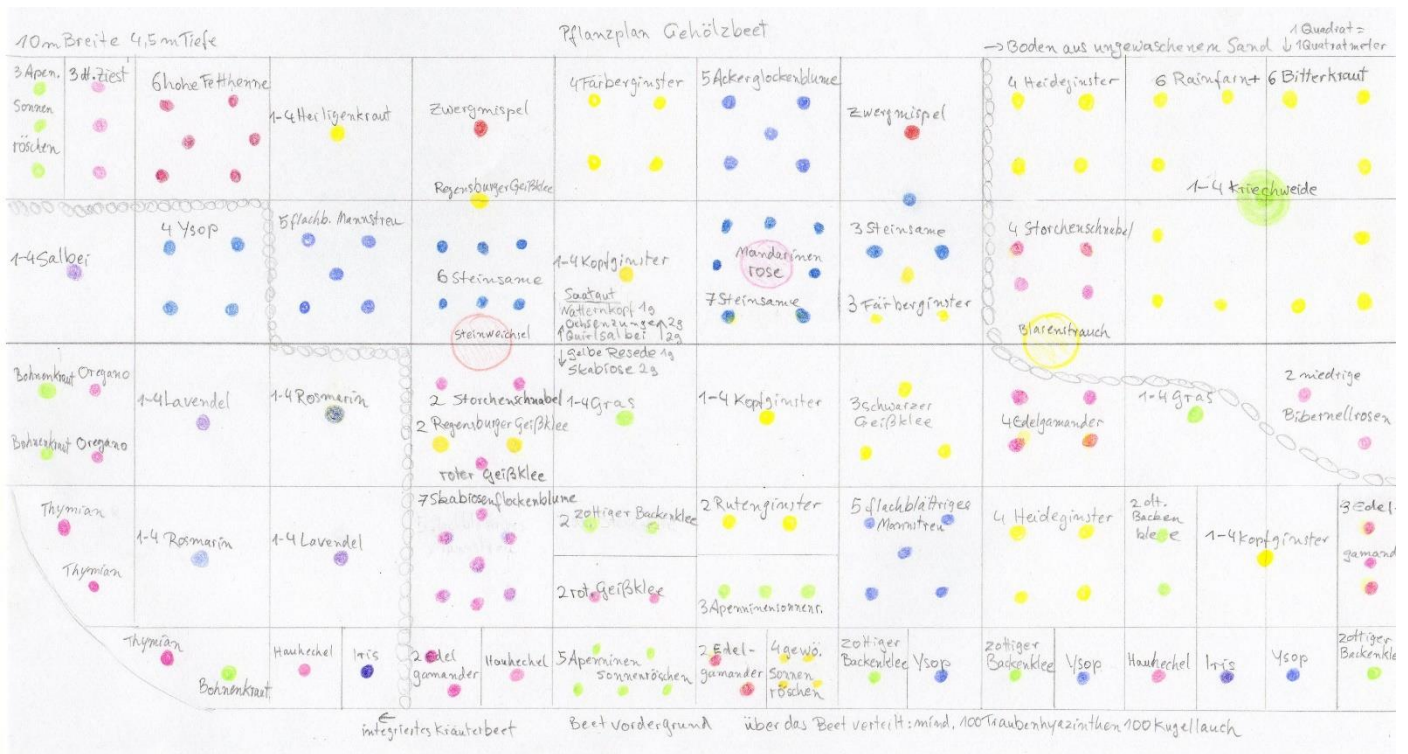 10m Breite 4,5m Tiefe
Pflanzplan Gehölzbeet
1 Quadrat =
→ Boden aus ungewaschenem Sand ↓ 1Quatratmeter
3 Apen.
Sonnen
röschen
3 d. Ziest
6 hohe Fetthenne
1-4 Heiligenkraut
Zwergmispel
Regensburger Geißklee
4 Färberginster
5 Ackerglockenblume
Zwergmispel
4 Heideginster
6 Rainfarn + 6 Bitterkraut
1-4 Kriechweide
1-4 Salbei
4 Ysop
5 flachb. Mannstreu
6 Steinsame
Steinweichsel
1-4 Kopfginster
Saatgut
Natternkopf 1g
↑ Ochsenzunge ↗ 2g
↑ Quirlsalbei 2g
↓ gelbe Resede 1g
Skabiose 2g
Mandarinen
rose
7 Steinsame
3 Steinsame
3 Färberginster
4 Storchenschnabel
Blasenstrauch
Bohnenkraut Oregano
Bohnenkraut Oregano
1-4 Lavendel
1-4 Rosmarin
2 Storchenschnabel
2 Regensburger Geißklee
roter Geißklee
1-4 Gras
1-4 Kopfginster
3 Schwarzer
Geißklee
4 Edelgamander
1-4 Gras
2 niedrige
Bibernellrosen
Thymian
Thymian
1-4 Rosmarin
1-4 Lavendel
7 Skabiosenflockenblume
2 zottiger Backenklee
2 rot. Geißklee
2 Rutenginster
3 Apenninensonnenr.
5 flachblättriger
Mannstreu
4 Heideginster
2 ott.
Backen
klee
1-4 Kopfginster
3 Edel-
gamand
Thymian
Bohnenkraut
Hauhechel
Iris
2 Edel
gamander
Hauhechel
5 Apenninen
sonnenröschen
2 Edel-
gamander
4 gewö.
Sonnen
röschen
zottiger
Backenklee
Ysop
zottiger
Backenklee
Ysop
Hauhechel
Iris
Ysop
zottiger
Backenkle
←
integriertes Kräuterbeet
Beetvordergrund
über das Beet verteilt: mind. 100 Traubenhyazinthen 100 Kugellauch